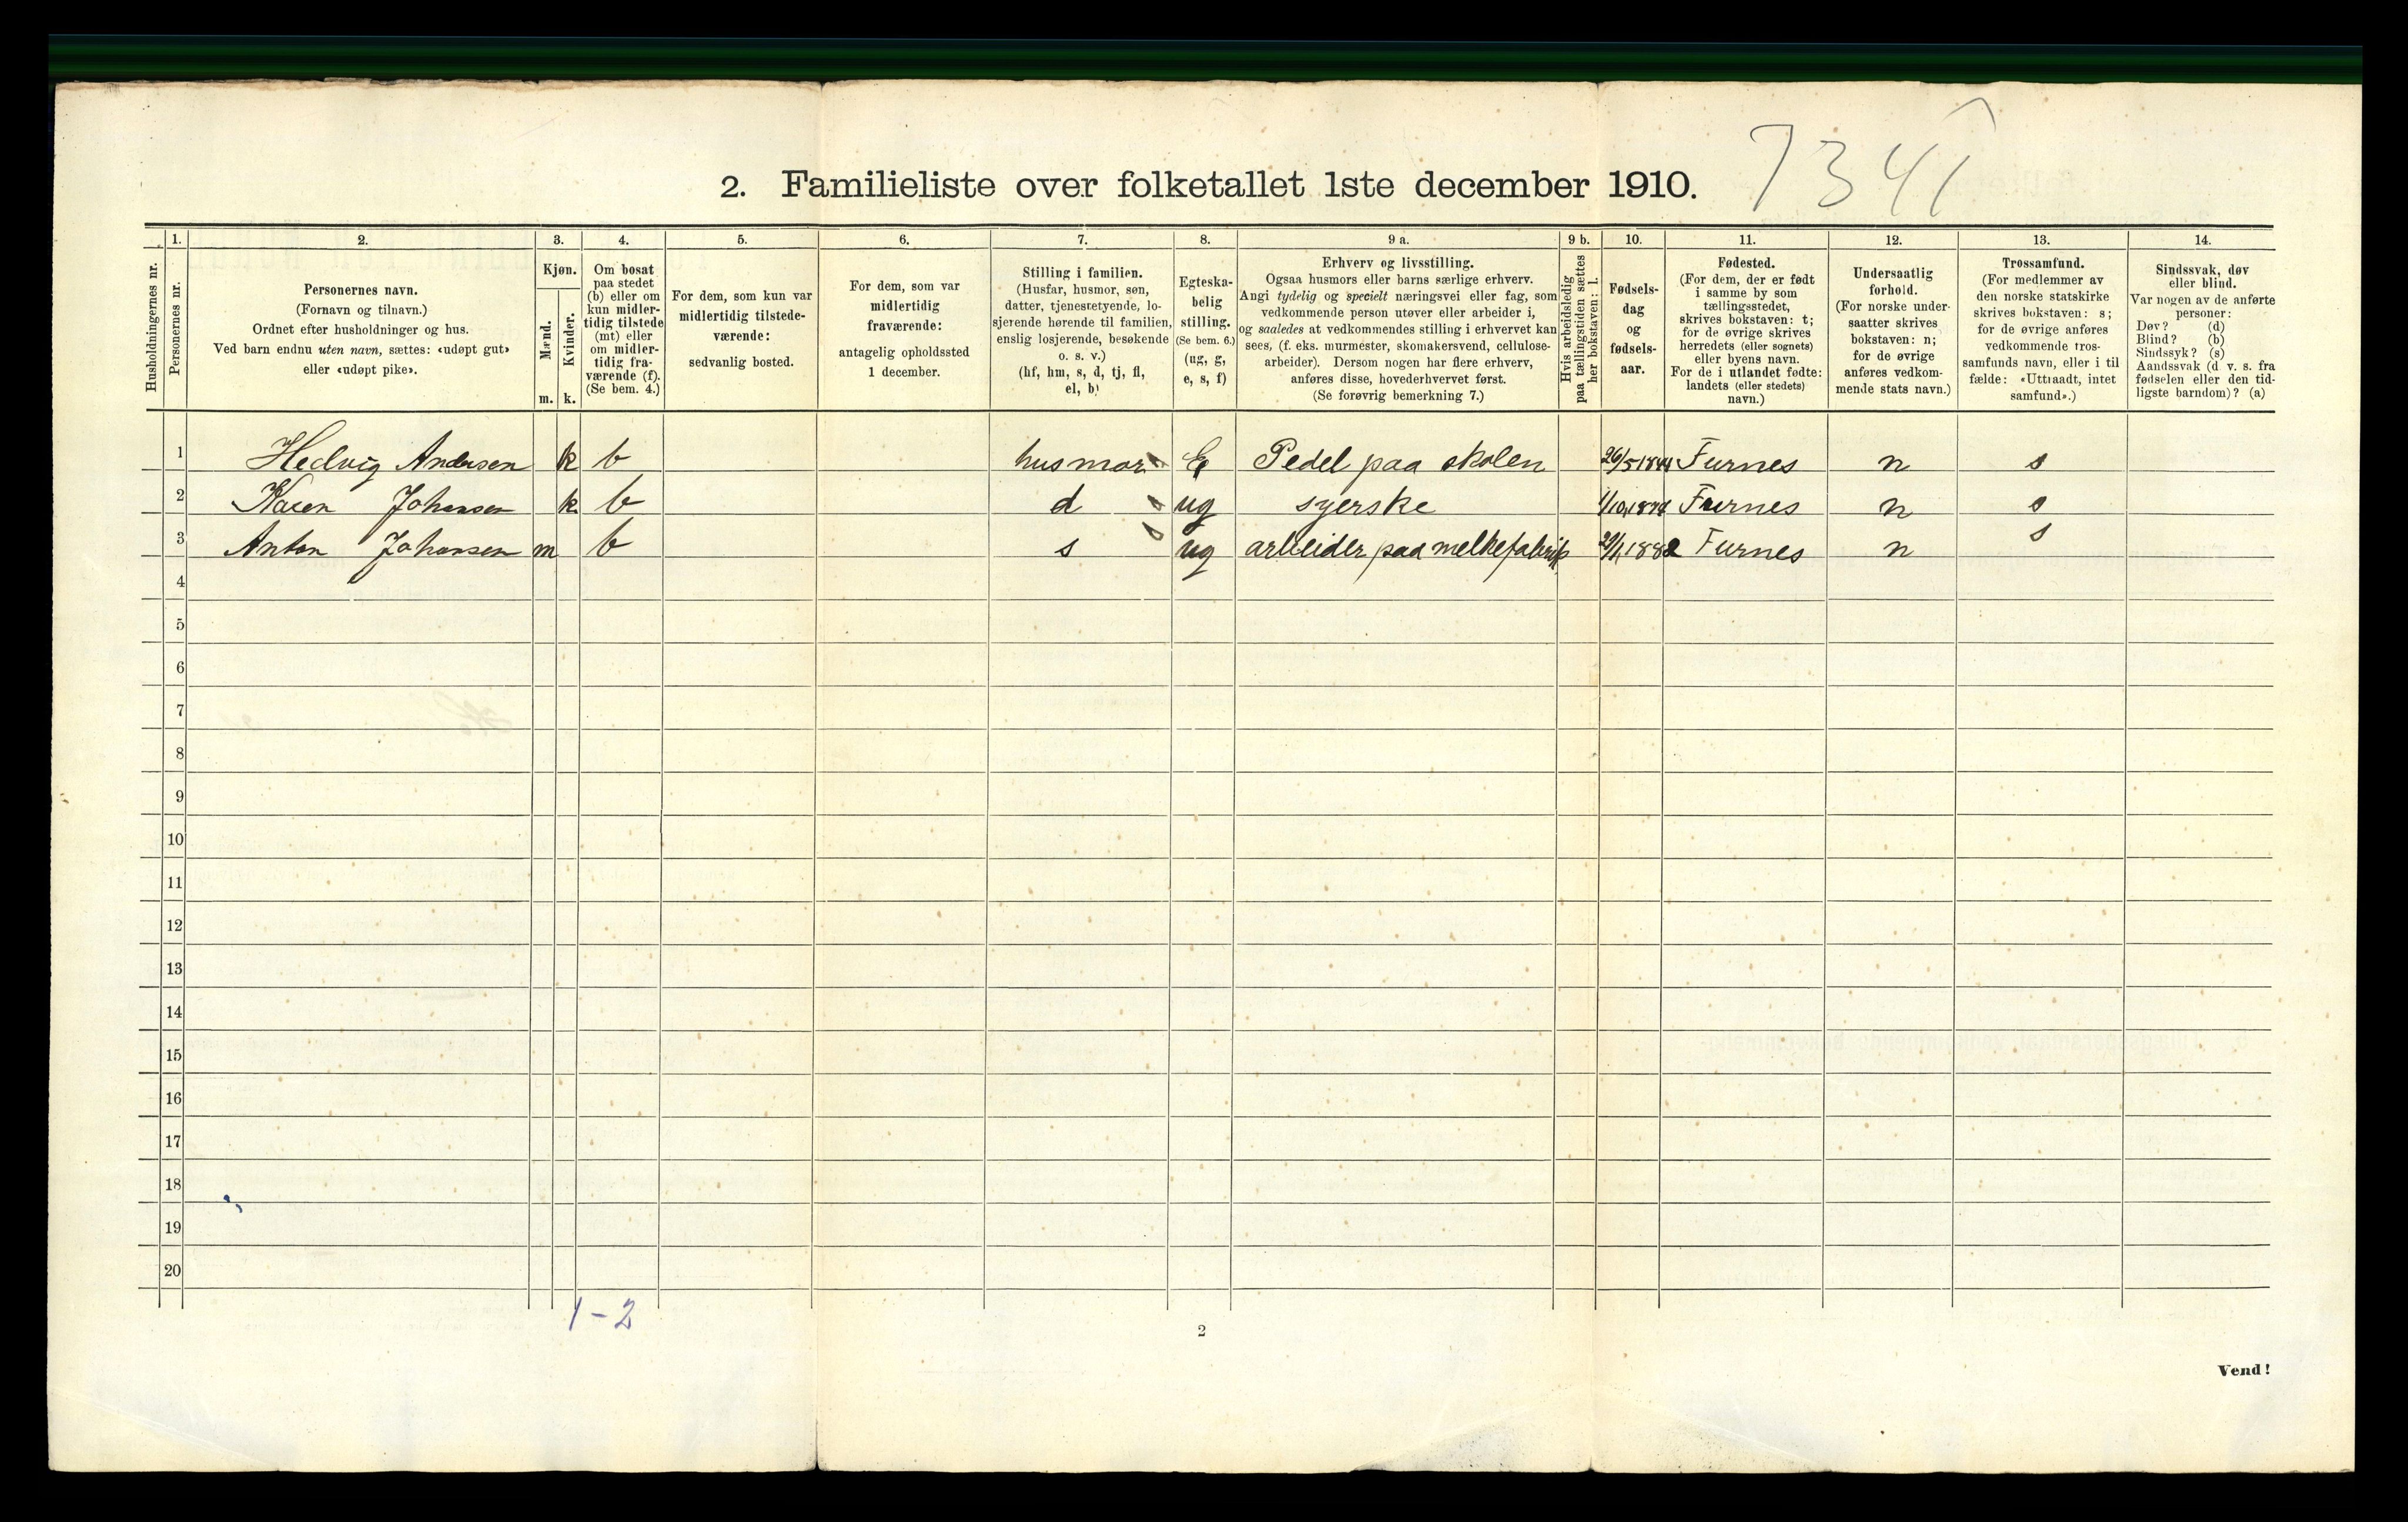 2. Familieliste over folketallet 1ste december 1910.
Husholdningernes nr.
1.
Personernes nr.
2.
Personernes navn.
(Fornavn og tilnavn.)
Ordnet efter husholdninger og hus.
Ved barn endnu uten navn, sættes: «udøpt gut»
eller «udøpt pike».
3.
Kjøn.
Mænd.
Kvinder.
m. k.
4.
Om bosat
paa stedet
(b) eller om
kun midler-
tidig tilstede
(mt) eller
om midler-
tidig fra-
værende (f).
(Se bem. 4.)
5.
For dem, som kun var
midlertidig tilstede-
værende:
sedvanlig bosted.
6.
For dem, som var
midlertidig
fraværende:
antagelig opholdssted
1 december.
7.
Stilling i familien.
(Husfar, husmor, søn,
datter, tjenestetyende, lo-
sjerende hørende til familien,
enslig losjerende, besøkende
o. s. v.)
(hf, hm, s, d, tj, fl,
el, b)
8.
Egteska-
belig
stilling.
(Se bem. 6.)
(ug, g,
e, s, f)
9 a.
Erhverv og livsstilling.
Ogsaa husmors eller barns særlige erhverv.
Angi tydelig og specielt næringsvei eller fag, som
vedkommende person utøver eller arbeider i,
og saaledes at vedkommendes stilling i erhvervet kan
sees, (f. eks. murmester, skomakersvend, cellulose-
arbeider). Dersom nogen har flere erhverv,
anføres disse, hovederhvervet først.
(Se forøvrig bemerkning 7.)
9 b.
Hvis arbeidsledig
paa tællingstiden sættes
her bokstaven: l.
10.
Fødsels-
dag
og
fødsels-
aar.
11.
Fødested.
(For dem, der er født
i samme by som
tællingsstedet,
skrives bokstaven: t;
for de øvrige skrives
herredets (eller sognets)
eller byens navn.
For de i utlandet fødte:
landets (eller stedets)
navn.)
12.
Undersaatlig
forhold.
(For norske under-
saatter skrives
bokstaven: n;
for de øvrige
anføres vedkom-
mende stats navn.)
13.
Trossamfund.
(For medlemmer av
den norske statskirke
skrives bokstaven: s;
for de øvrige anføres
vedkommende tros-
samfunds navn, eller i til
fælde: «Uttraadt, intet
samfund».)
14.
Sindssvak, døv
eller blind.
Var nogen av de anførte
personer:
Døv? (d)
Blind? (b)
Sindssyk? (s)
Aandssvak (d v. s. fra
fødselen eller den tid-
ligste barndom)? (a)
1 Hedvig Andersen k b husmor E Pedel paa skolen 26/5 Furnes n s
2 Karen Johansen k b d ug syerske Furnes n s
3 Anton Johansen m b s ug arbeider paa melkefabrik 1882 Furnes n s
4
5
6
7
8
9
10
11
12
13
14
15
16
17
18
19
20
1-2
2
Vend!